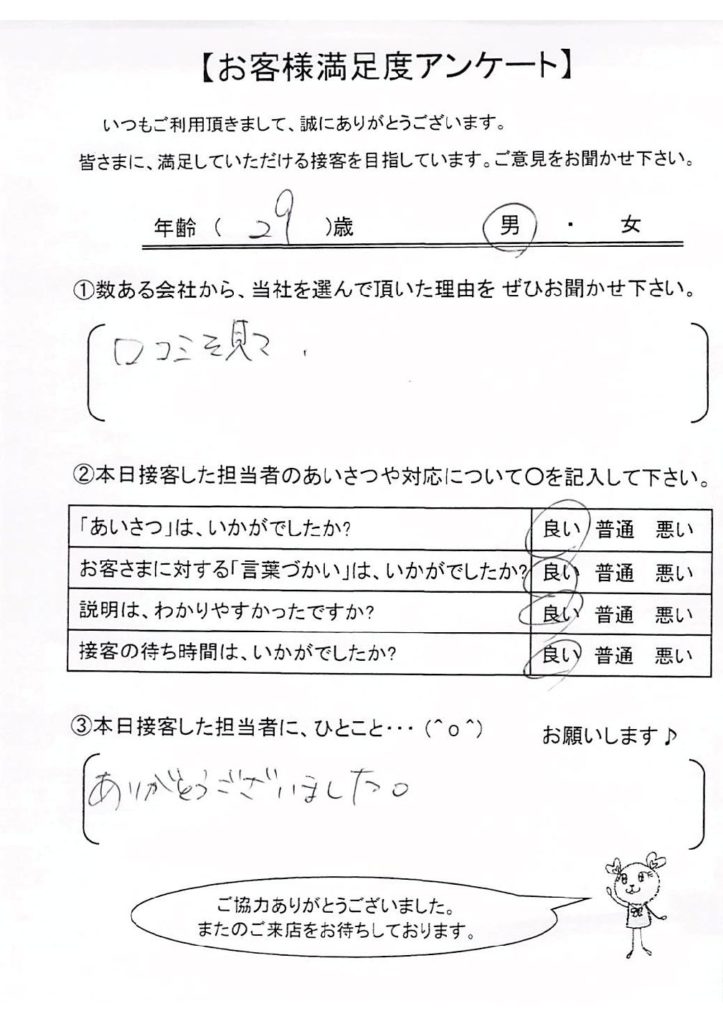 【お客様満足度アンケート】
いつもご利用頂きまして、誠にありがとうございます。
皆さまに、満足していただける接客を目指しています。ご意見をお聞かせ下さい。
年齢（ 29 ）歳 男 ・ 女
①数ある会社から、当社を選んで頂いた理由を ぜひお聞かせ下さい。
口コミを見て.
②本日接客した担当者のあいさつや対応について〇を記入して下さい。
「あいさつ」は、いかがでしたか? 良い 普通 悪い
お客さまに対する「言葉づかい」は、いかがでしたか? 良い 普通 悪い
説明は、わかりやすかったですか? 良い 普通 悪い
接客の待ち時間は、いかがでしたか? 良い 普通 悪い
③本日接客した担当者に、ひとこと・・・（＾ｏ＾） お願いします♪
ありがとうございました。
ご協力ありがとうございました。
またのご来店をお待ちしております。